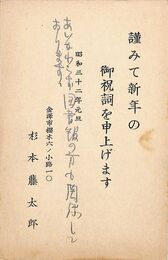 謹みて新年の
御祝詞を申上げます
昭和三十二年元旦
図書館の方も関係して
おります
金澤市櫻木六ノ小路一〇
杉本藤太郎